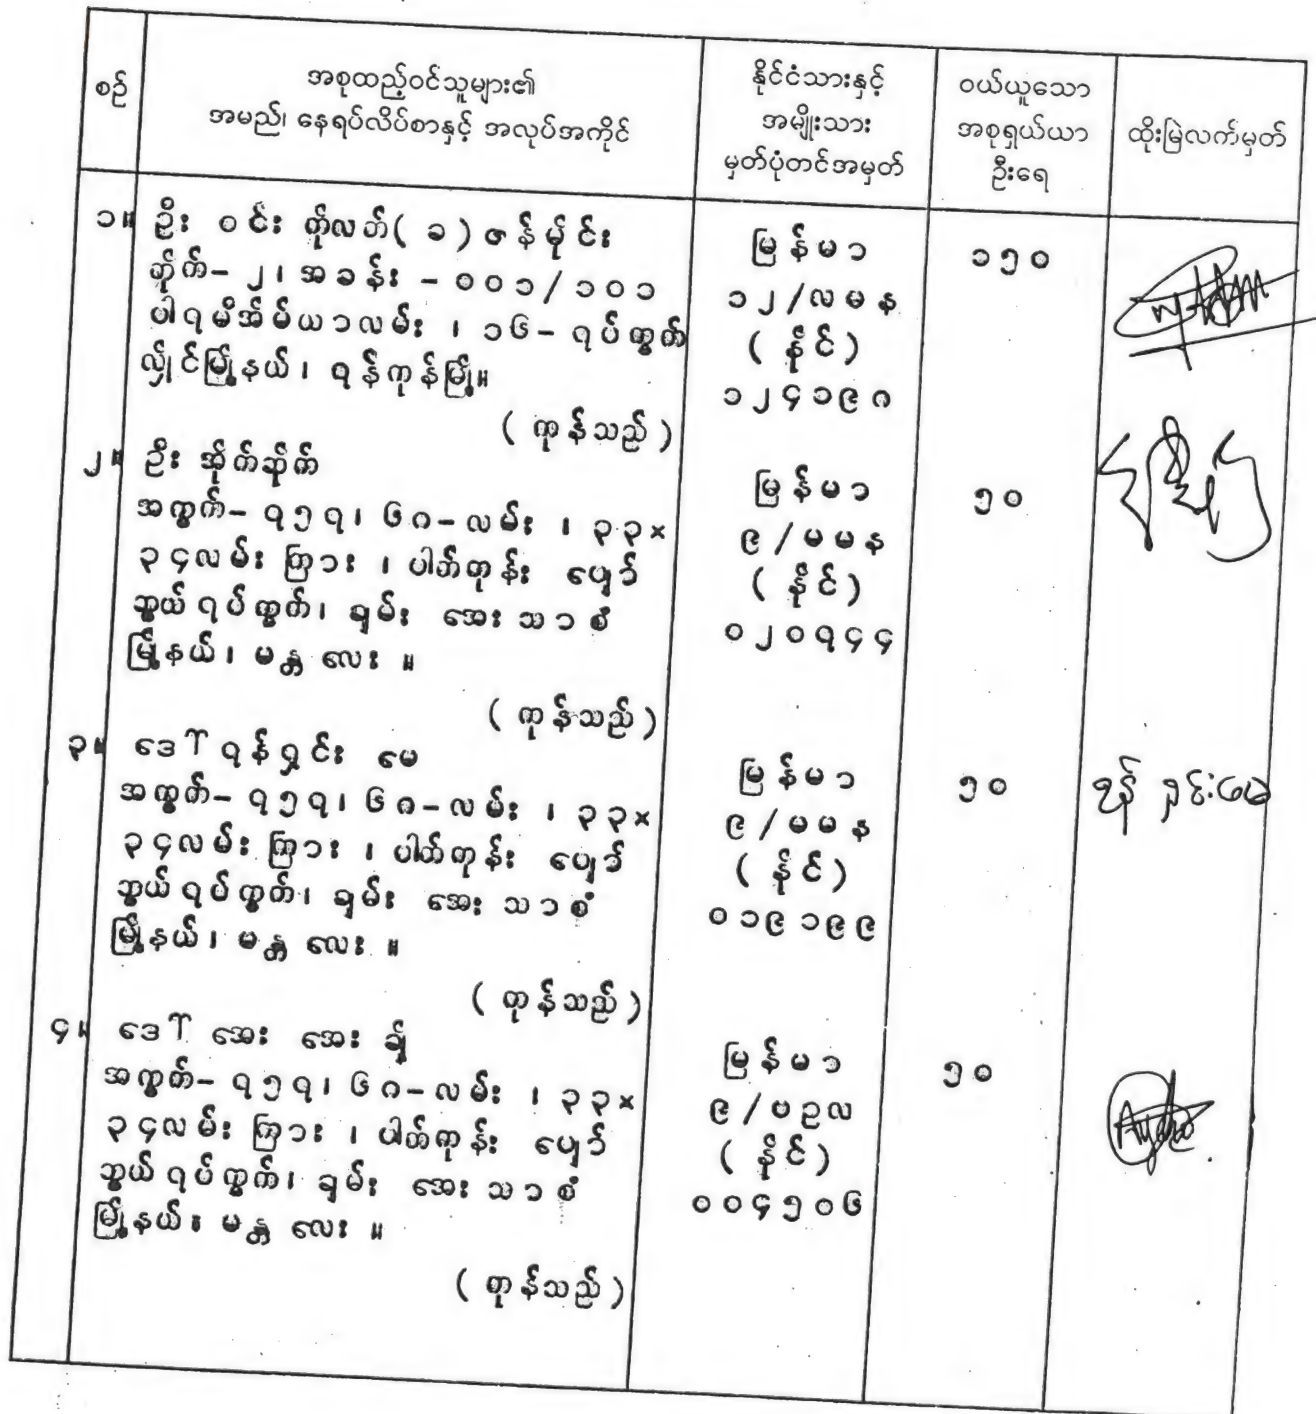 စဉ်
အစုထည့်ဝင်သူများ၏
အမည်၊ နေရပ်လိပ်စာနှင့် အလုပ်အကိုင်
နိုင်ငံသားနှင့်
အမျိုးသား
မှတ်ပုံတင်အမှတ်
ဝယ်ယူသော
အစုရှယ်ယာ
ဦးရေ
ထိုးမြဲလက်မှတ်
၁။ ဦး ဝင်း ကိုလတ် ( ခ ) ဇန်မိုင်း
ဆိုက်- ၂၊ အခန်း - ၀၀၁/၁၀၁
ပါရမီအိမ်ယာလမ်း ၊ ၁၆- ရပ်ကွက်
လှိုင်မြို့နယ်၊ ရန်ကုန်မြို့။
( ကုန်သည် )
မြန်မာ
၁၂/လမန
( နိုင် )
၁၂၄၁၉၈
၁၅၀
၂။ ဦး အိုက်ဆိုက်
အကွက်- ၇၅၇၊ ၆၈-လမ်း ၊ ၃၃×
၃၄လမ်း ကြား ၊ ပါတ်ကုန်း ပျော်
ဘွယ် ရပ်ကွက်၊ ချမ်း အေး သာ စံ
မြို့နယ်၊ မန္တ လေး ။
( ကုန်သည် )
မြန်မာ
၉/မမန
( နိုင် )
၀၂၀၇၄၄
၅၀
၃။ ဒေါ် ရန်ရှင်း မေ
အကွက်- ၇၅၇၊ ၆၈-လမ်း ၊ ၃၃×
၃၄လမ်း ကြား ၊ ပါတ်ကုန်း ပျော်
ဘွယ် ရပ်ကွက်၊ ချမ်း အေး သာ စံ
မြို့နယ်၊ မန္တ လေး ။
( ကုန်သည် )
မြန်မာ
၉/မမန
( နိုင် )
၀၁၉၁၉၉
၅၀
ရန် ရှင်းမေ
၄။ ဒေါ် အေး အေး ချို
အကွက်- ၇၅၇၊ ၆၈-လမ်း ၊ ၃၃×
၃၄လမ်း ကြား ၊ ပါတ်ကုန်း ပျော်
ဘွယ် ရပ်ကွက်၊ ချမ်း အေး သာ စံ
မြို့နယ်၊ မန္တ လေး ။
( ကုန်သည် )
မြန်မာ
၉/ဗဥလ
( နိုင် )
၀၀၄၅၀၆
၅၀